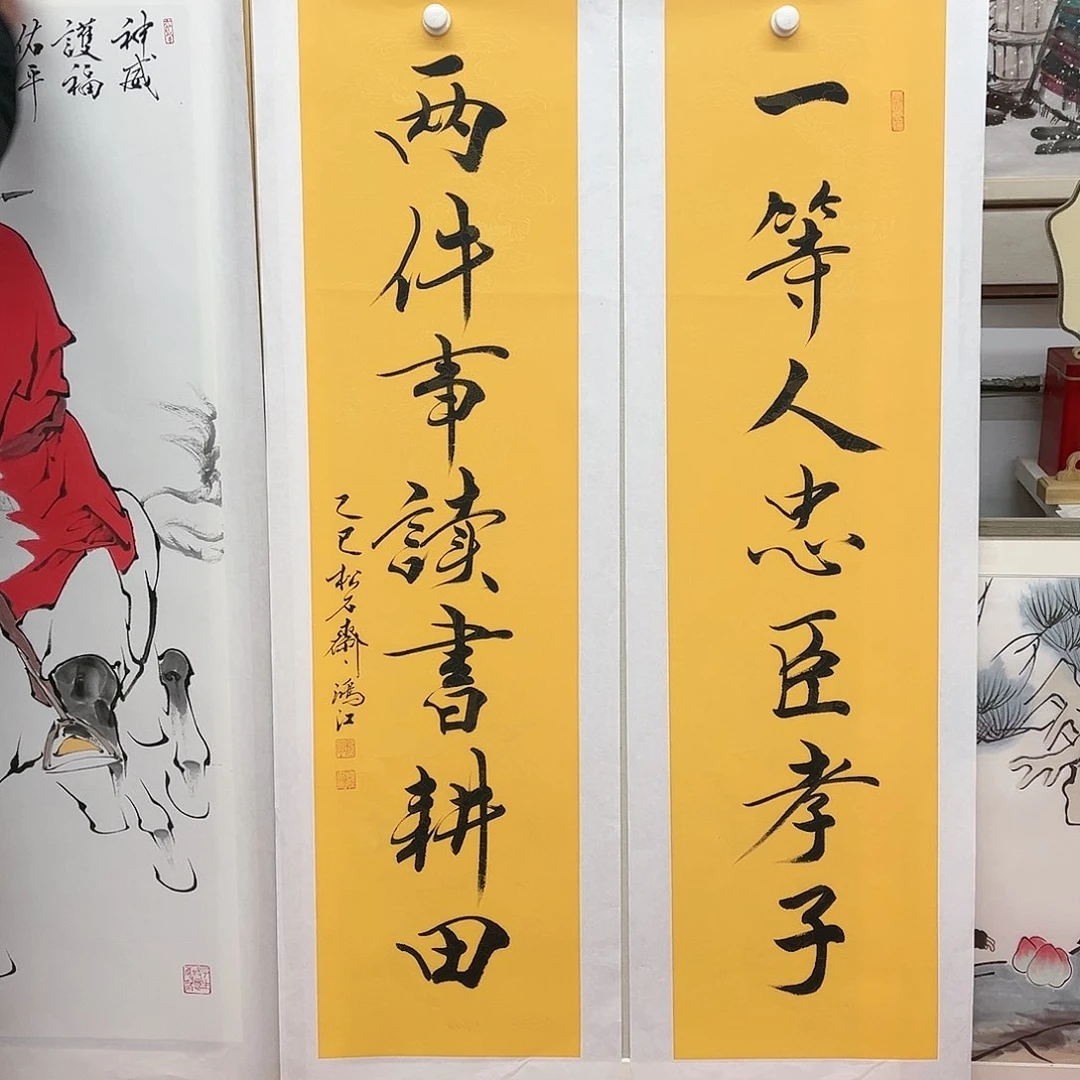 一等人忠臣孝子
两件事讀書耕田
乙巳松石齋鴻江
神威
護福
佑平